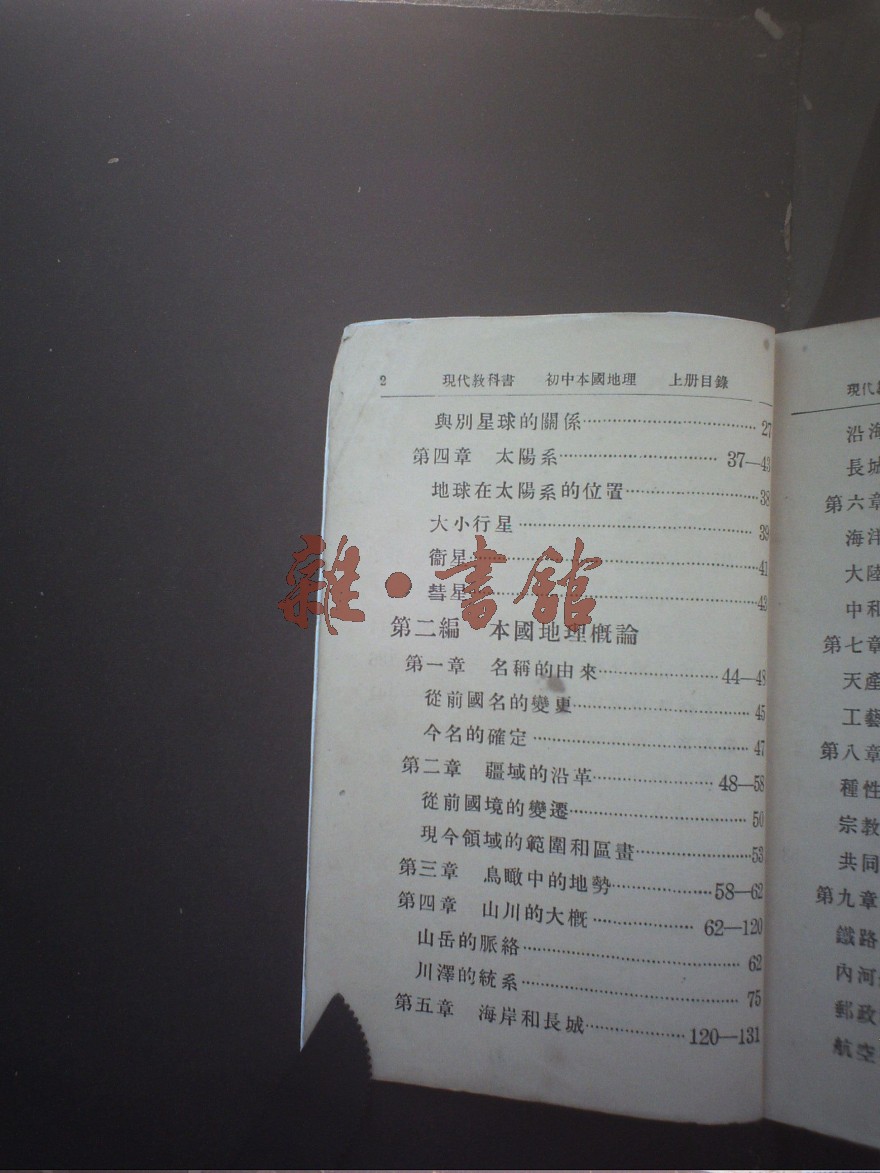 2 現代教科書 初中本國地理 上册目錄
與別星球的關係……27
第四章 太陽系……37—43
地球在太陽系的位置……38
大小行星……39
衞星……41
彗星……43
第二編 本國地理概論
第一章 名稱的由來……44—48
從前國名的變更……45
今名的確定……47
第二章 疆域的沿革……48—58
從前國境的變遷……50
現今領域的範圍和區畫……53
第三章 鳥瞰中的地勢……58—62
第四章 山川的大概……62—120
山岳的脈絡……62
川澤的統系……75
第五章 海岸和長城……120—131
雜·書館
現代
沿海
長城
第六章
海洋
大陸
中和
第七章
天產
工藝
第八章
種性
宗教
共同
第九章
鐵路
內河
郵政
航空